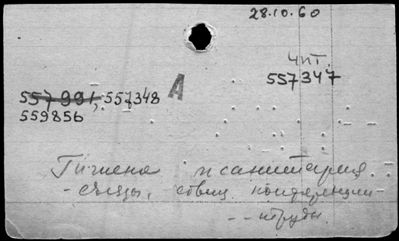 28.10.60
Чит.
557347
557991, 557348
А
559856
Гигиена и санитария.
- съезды, совещ. конференции -
- - труды.